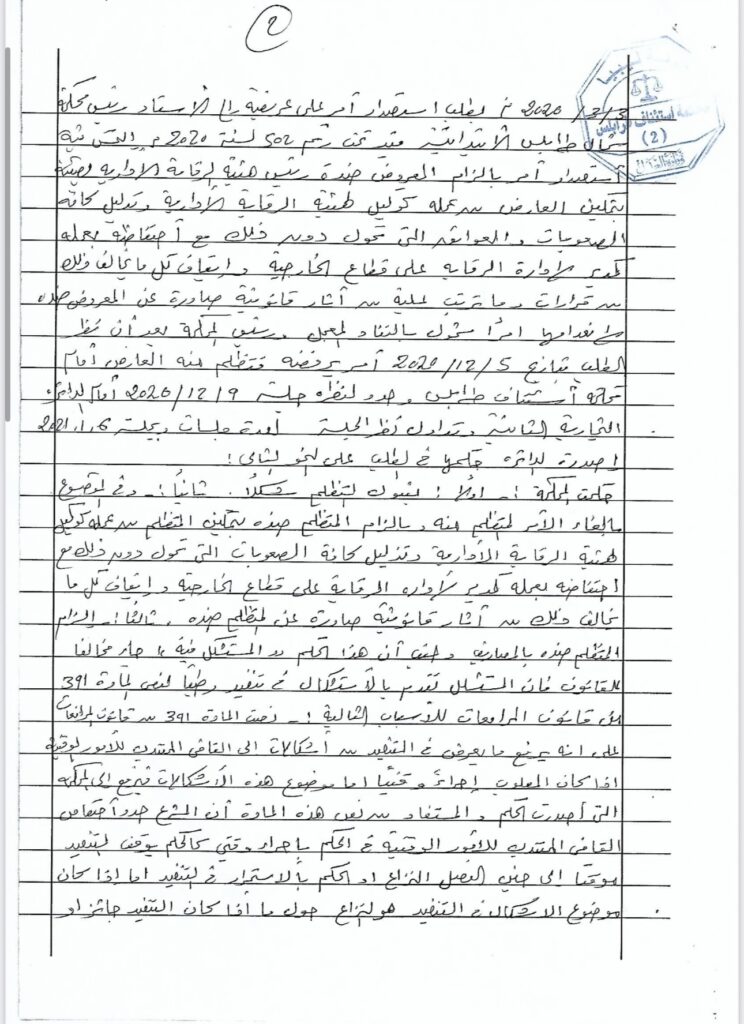 2
3/3/2020 م بطلب استصدار أمر على عريضة إلى الأستاذ رئيس محكمة
شمال طرابلس الابتدائية قيد تحت رقم 502 لسنة 2020 م التمس فيه
استصدار أمر بالزام المعروض ضده رئيس هيئة الرقابة الإدارية بصفته
بتمكين العارض من عمله كوكيل لهيئة الرقابة الأدارية وتذليل كافة
الصعوبات والعوائق التى تحول دون ذلك مع أحتفاضه بعمله
كمدير لإدارة الرقابه على قطاع الخارجية وايقاف كل ما يخالف ذلك
من قرارات وما يترتب عليه من آثار قانونية صادرة عن المعروض ضده
امرًا مشمول بالنفاذ المعجل ورئيس المحكمة بعد أن نظر
الطلب بتاريخ 5/12/2020 أمر برفضه فتظلم منه العارض أمام
محكمة أستئناف طرابلس وحدد لنظره جلسة 9/12/2020 أمام الدائرة
التجارية الثانية وتداول نظر الجلسة لعدة جلسات وبجلسة 6/1/2021
اصدرة الدائره حكمها فى الطلب على النحو التالى :
حكمت المحكمة :- اولاً : بقبول التظلم شكلاً . ثانياً :- وفى الموضوع
بالغاء الأمر المتظلم منه وبالزام المتظلم ضده بتمكين المتظلم من عمله كوكيل
لهيئة الرقابة الأدارية وتذليل كافة الصعوبات التى تحول دون ذلك مع
احتفاضه بعمله كمدير لأداره الرقابة على قطاع الخارجية وايقاف كل ما
يخالف ذلك من آثار قانونية صادرة عن المتظلم ضده . ثالثًا :- الزام
المتظلم ضده بالمصاريف وحيث أن هذا الحكم " المستشكل فيه " جاء مخالفا
للقانون فان المستشكل تقدم بالأستشكال فى تنفيذ وطبقًا لنص المادة 391
من قانون المرافعات للأسباب التالية :- نصت المادة 391 من قانون المرافعات
على انه يرفع ما يعرض فى التنفيذ من أشكالات الى القاضى المنتدب للأمور الوقتية
اذا كان المطلوب إجراءً وقتيًا اما موضوع هذه الأشكالات فيرفع الى المحكمة
التى أصدرت الحكم والمستفاد من نص هذه المادة أن المشرع حدد أختصاص
القاضى المنتدب للأمور الوقتية فى الحكم بإجراء وقتي كالحكم بوقف التنفيذ
موقتًا إلى حين الفصل النزاع او الحكم بالأستمرار فى التنفيذ اما إذا كان
موضوع الاشكال فى التنفيذ هو النزاع حول ما اذا كان التنفيذ جائز او
محكمة استئناف طرابلس
(2)